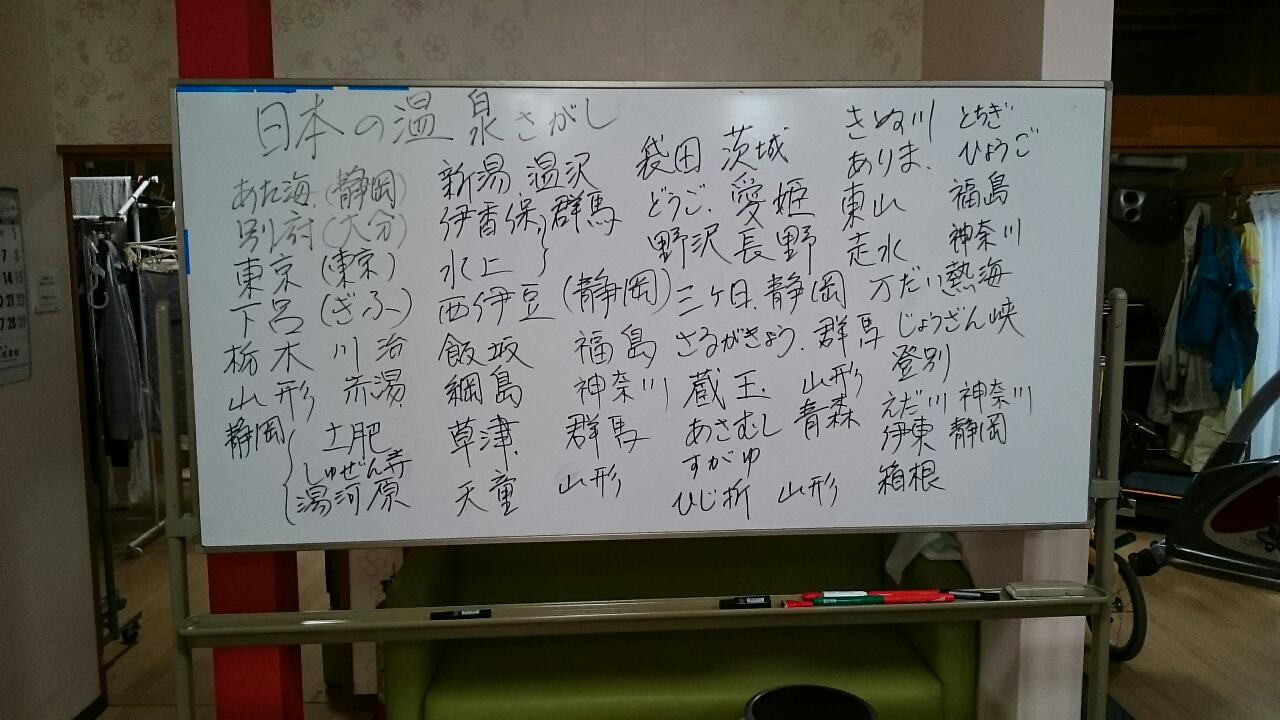 日本の温泉さがし
あた海 (静岡)
別府 (大分)
東京 (東京)
下呂 (ぎふ)
栃木 川治
山形 赤湯
静岡 土肥
しゅぜん寺
湯河原
新潟.湯沢
伊香保 群馬
水上
西伊豆 (静岡)
飯坂 福島
綱島 神奈川
草津. 群馬
天童 山形
袋田 茨城
どうご.愛姫
野沢 長野
三ケ日.静岡
さるがきょう.群馬
蔵王. 山形
あさむし 青森
すがゆ
ひじ折 山形
きぬ川 とちぎ
ありま. ひょうご
東山 福島
走水 神奈川
万だい 熱海
じょうざん峡
登別
えだ川 神奈川
伊東 静岡
箱根